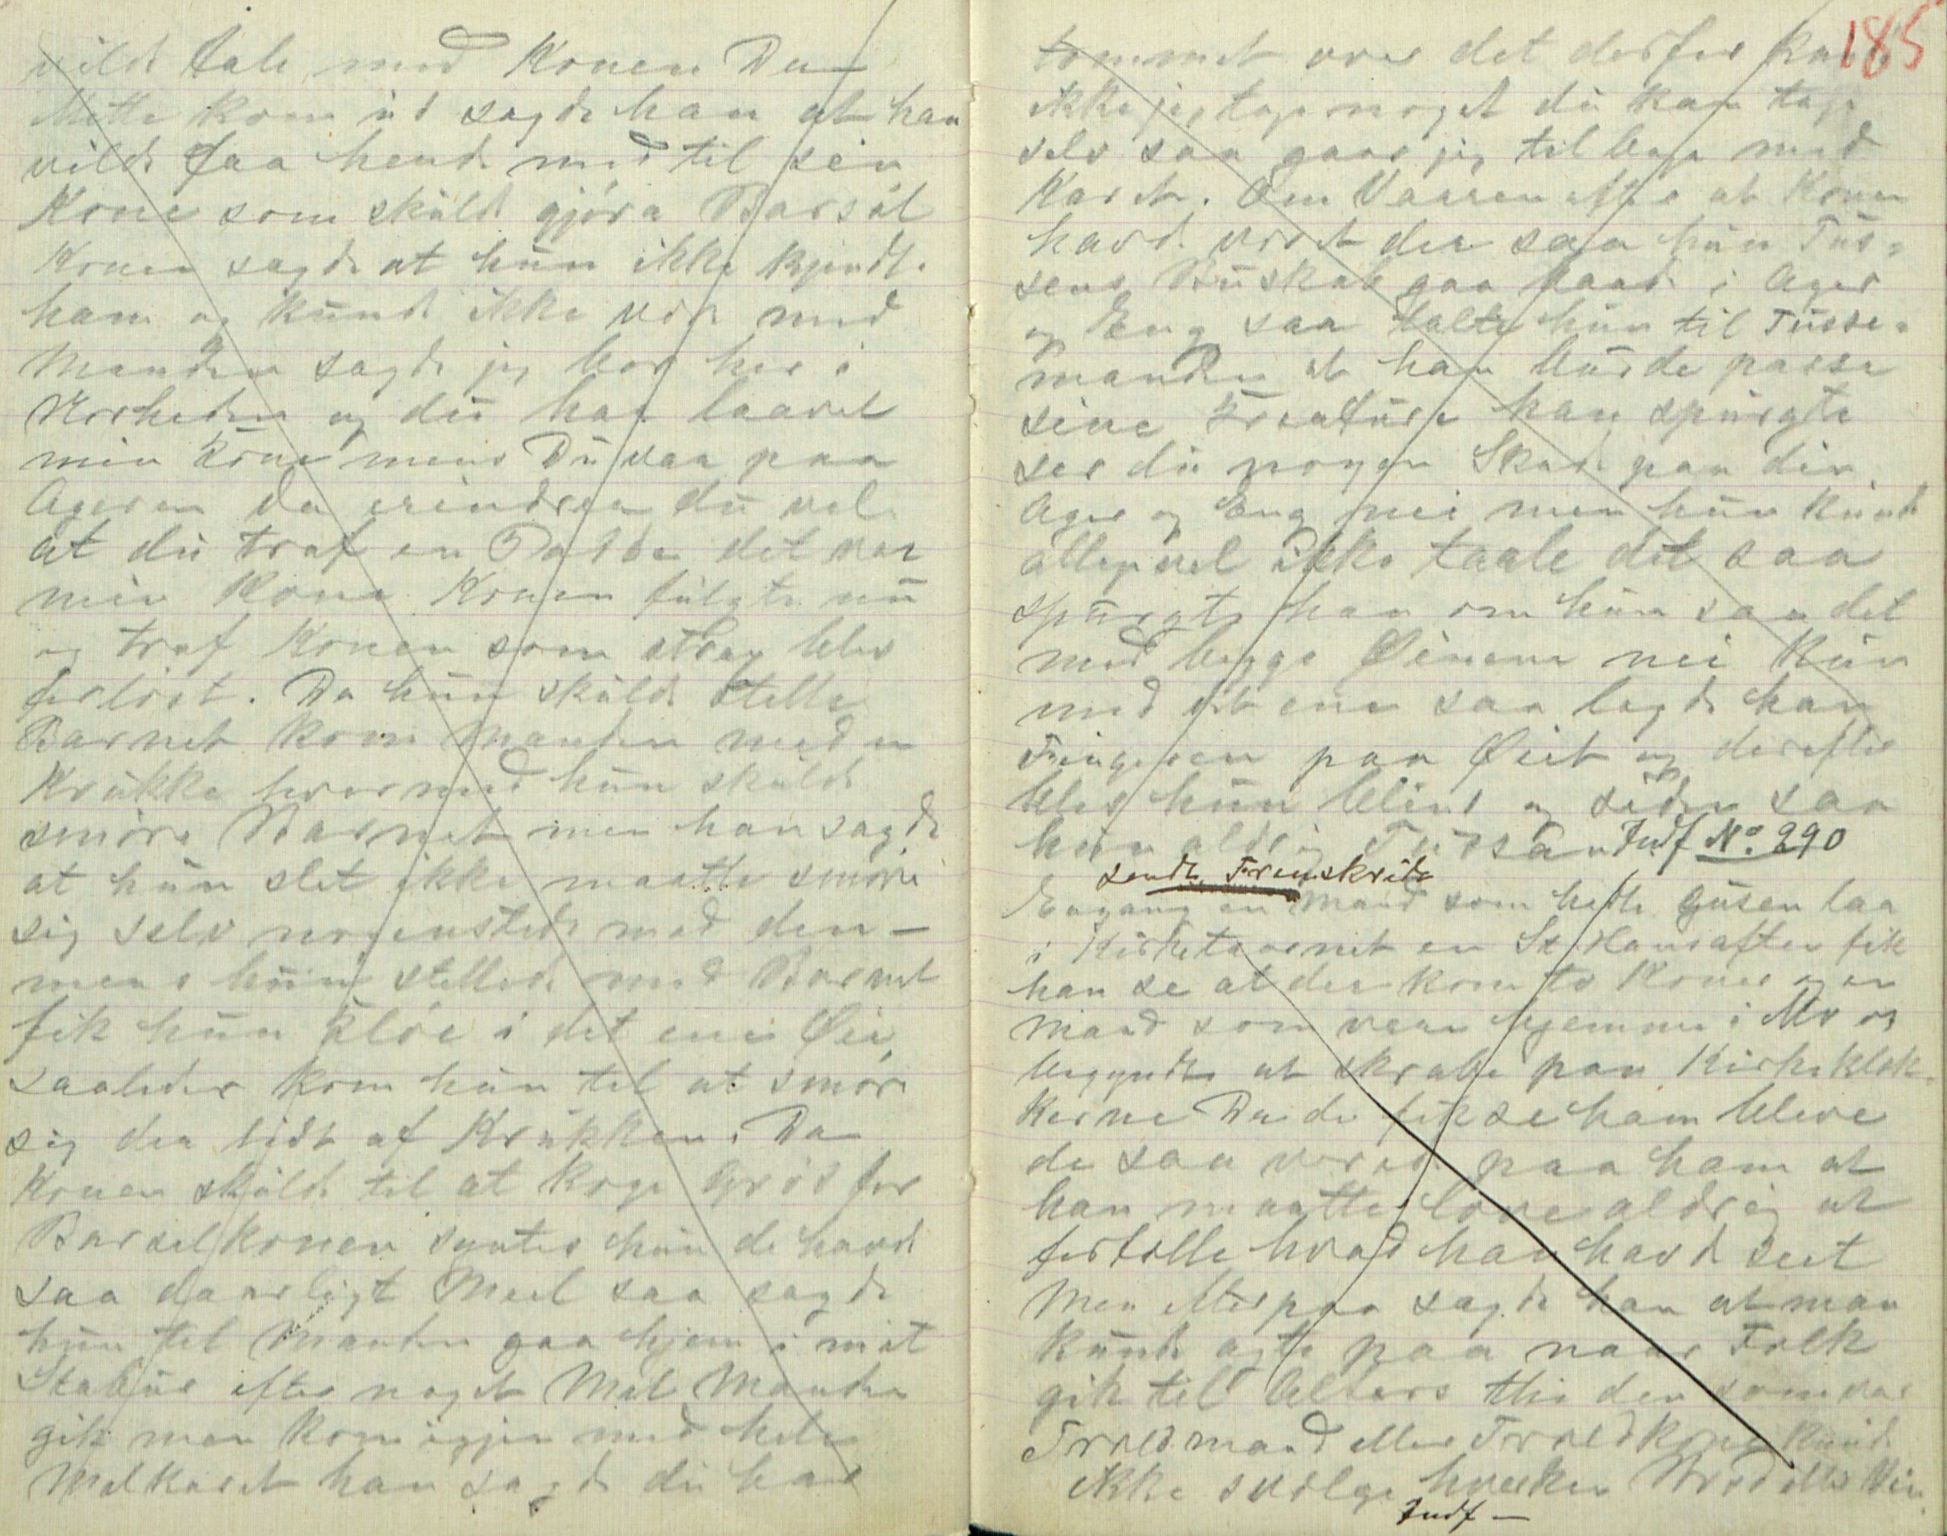 vilde tale med Konen Da
Mette kom ud sagde han at han
vilde faa hende med til sin
Kone som skùlde gjøra Barsøl
Konen sagde at hùn ikke kjendte
ham og kùnde ikke være med
Manden sagde jeg bor her i
Nærheden og dù har laavet
min Kone mens Dù var paa
Ageren da erindrer dù vel
at dù traf en Padde det var
min Kone Konen fùlgte nù
og traf Konen som strax blev
forløst. Da hùn skùlde stelle
Barnet kom Manden med en
Krùkke hvormed hùn skùlde
smøre Barnet men han sagde
at hùn slet ikke maatte smøre
sig selv nogensteds med den –
mens hùn stellede med Barnet
fik hùn kløe i det ene Øie,
saaledes kom hùn til at smøre
sig der lidt af Krùkken. Da
Konen skùlde til at koge Grød for
Barselkonen syntes hùn de havde
saa daarligt Meel saa sagde
hùn til Manden gaa hjem i mit
Stabùr efter noget Mel Manden
gik men kom igjen med hele
Melkaret han sagde dù har
185
tommet over det derfor kùnde
ikke jeg tage noget dù kan tage
selv saa gaar jeg tilbage med
Karet. Om Vaaren efter at Konen
havde været der saa hùn Tùs-
sens Bùskab gaa baade i Ager
og Eng saa talte hùn til Tùsse-
manden at han bùrde passe
sine Kreatùre han spùrgte
ser dù nogen Skade paa din
Ager og Eng nei men hùn kùnde
alligevel ikke taale det saa
spùrgte han om hùn saa det
med begge Øinene nei kùn
med det ene saa lagde han
Fingeren paa Øiet og derefter
blev hùn blind og siden saa
hùn aldrig Tùssen Indf No. 290
sendt Frenskrift
Engang en Mand som hette Gùsen laa
i Kirketaarnet en St. Hansaften fik
han se at der kom to Koner og en
Mand som vare hjemme i Mo og
begyndte at skrabe paa Kirkeklok-
kerne Da de fik se ham bleve
de saa vrede paa ham at
han maatte love aldrig at
fortelle hvad han havde seet
Men efterpaa sagde han at man
kùnde agte paa naar Folk
gik til Alters thi den som var
Troldmand eller Troldkone kùnde
ikke svælge hverken Brød eller Vin.
Indf –